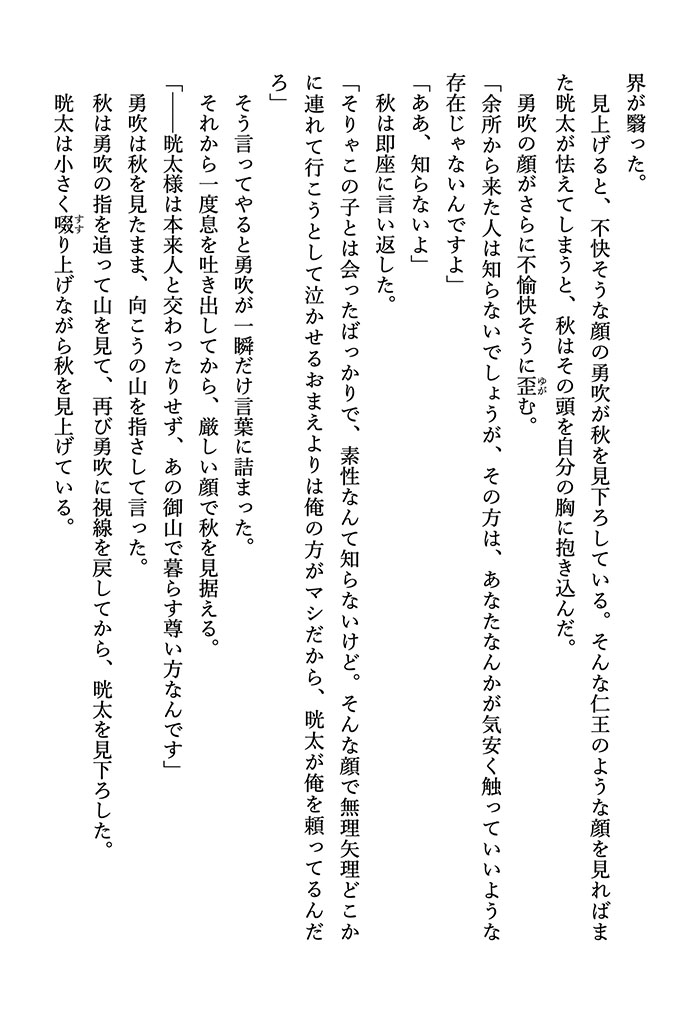 界が翳った。
　見上げると、不快そうな顔の勇吹が秋を見下ろしている。そんな仁王のような顔を見ればま
た晄太が怯えてしまうと、秋はその頭を自分の胸に抱き込んだ。
　勇吹の顔がさらに不愉快そうに歪む。
「余所から来た人は知らないでしょうが、その方は、あなたなんかが気安く触っていいような
存在じゃないんですよ」
「ああ、知らないよ」
　秋は即座に言い返した。
「そりゃこの子とは会ったばっかりで、素性なんて知らないけど。そんな顔で無理矢理どこか
に連れて行こうとして泣かせるおまえよりは俺の方がマシだから、晄太が俺を頼ってるんだ
ろ」
　そう言ってやると勇吹が一瞬だけ言葉に詰まった。
　それから一度息を吐き出してから、厳しい顔で秋を見据える。
「――晄太様は本来人と交わったりせず、あの御山で暮らす尊い方なんです」
　勇吹は秋を見たまま、向こうの山を指さして言った。
　秋は勇吹の指を追って山を見て、再び勇吹に視線を戻してから、晄太を見下ろした。
　晄太は小さく啜り上げながら秋を見上げている。